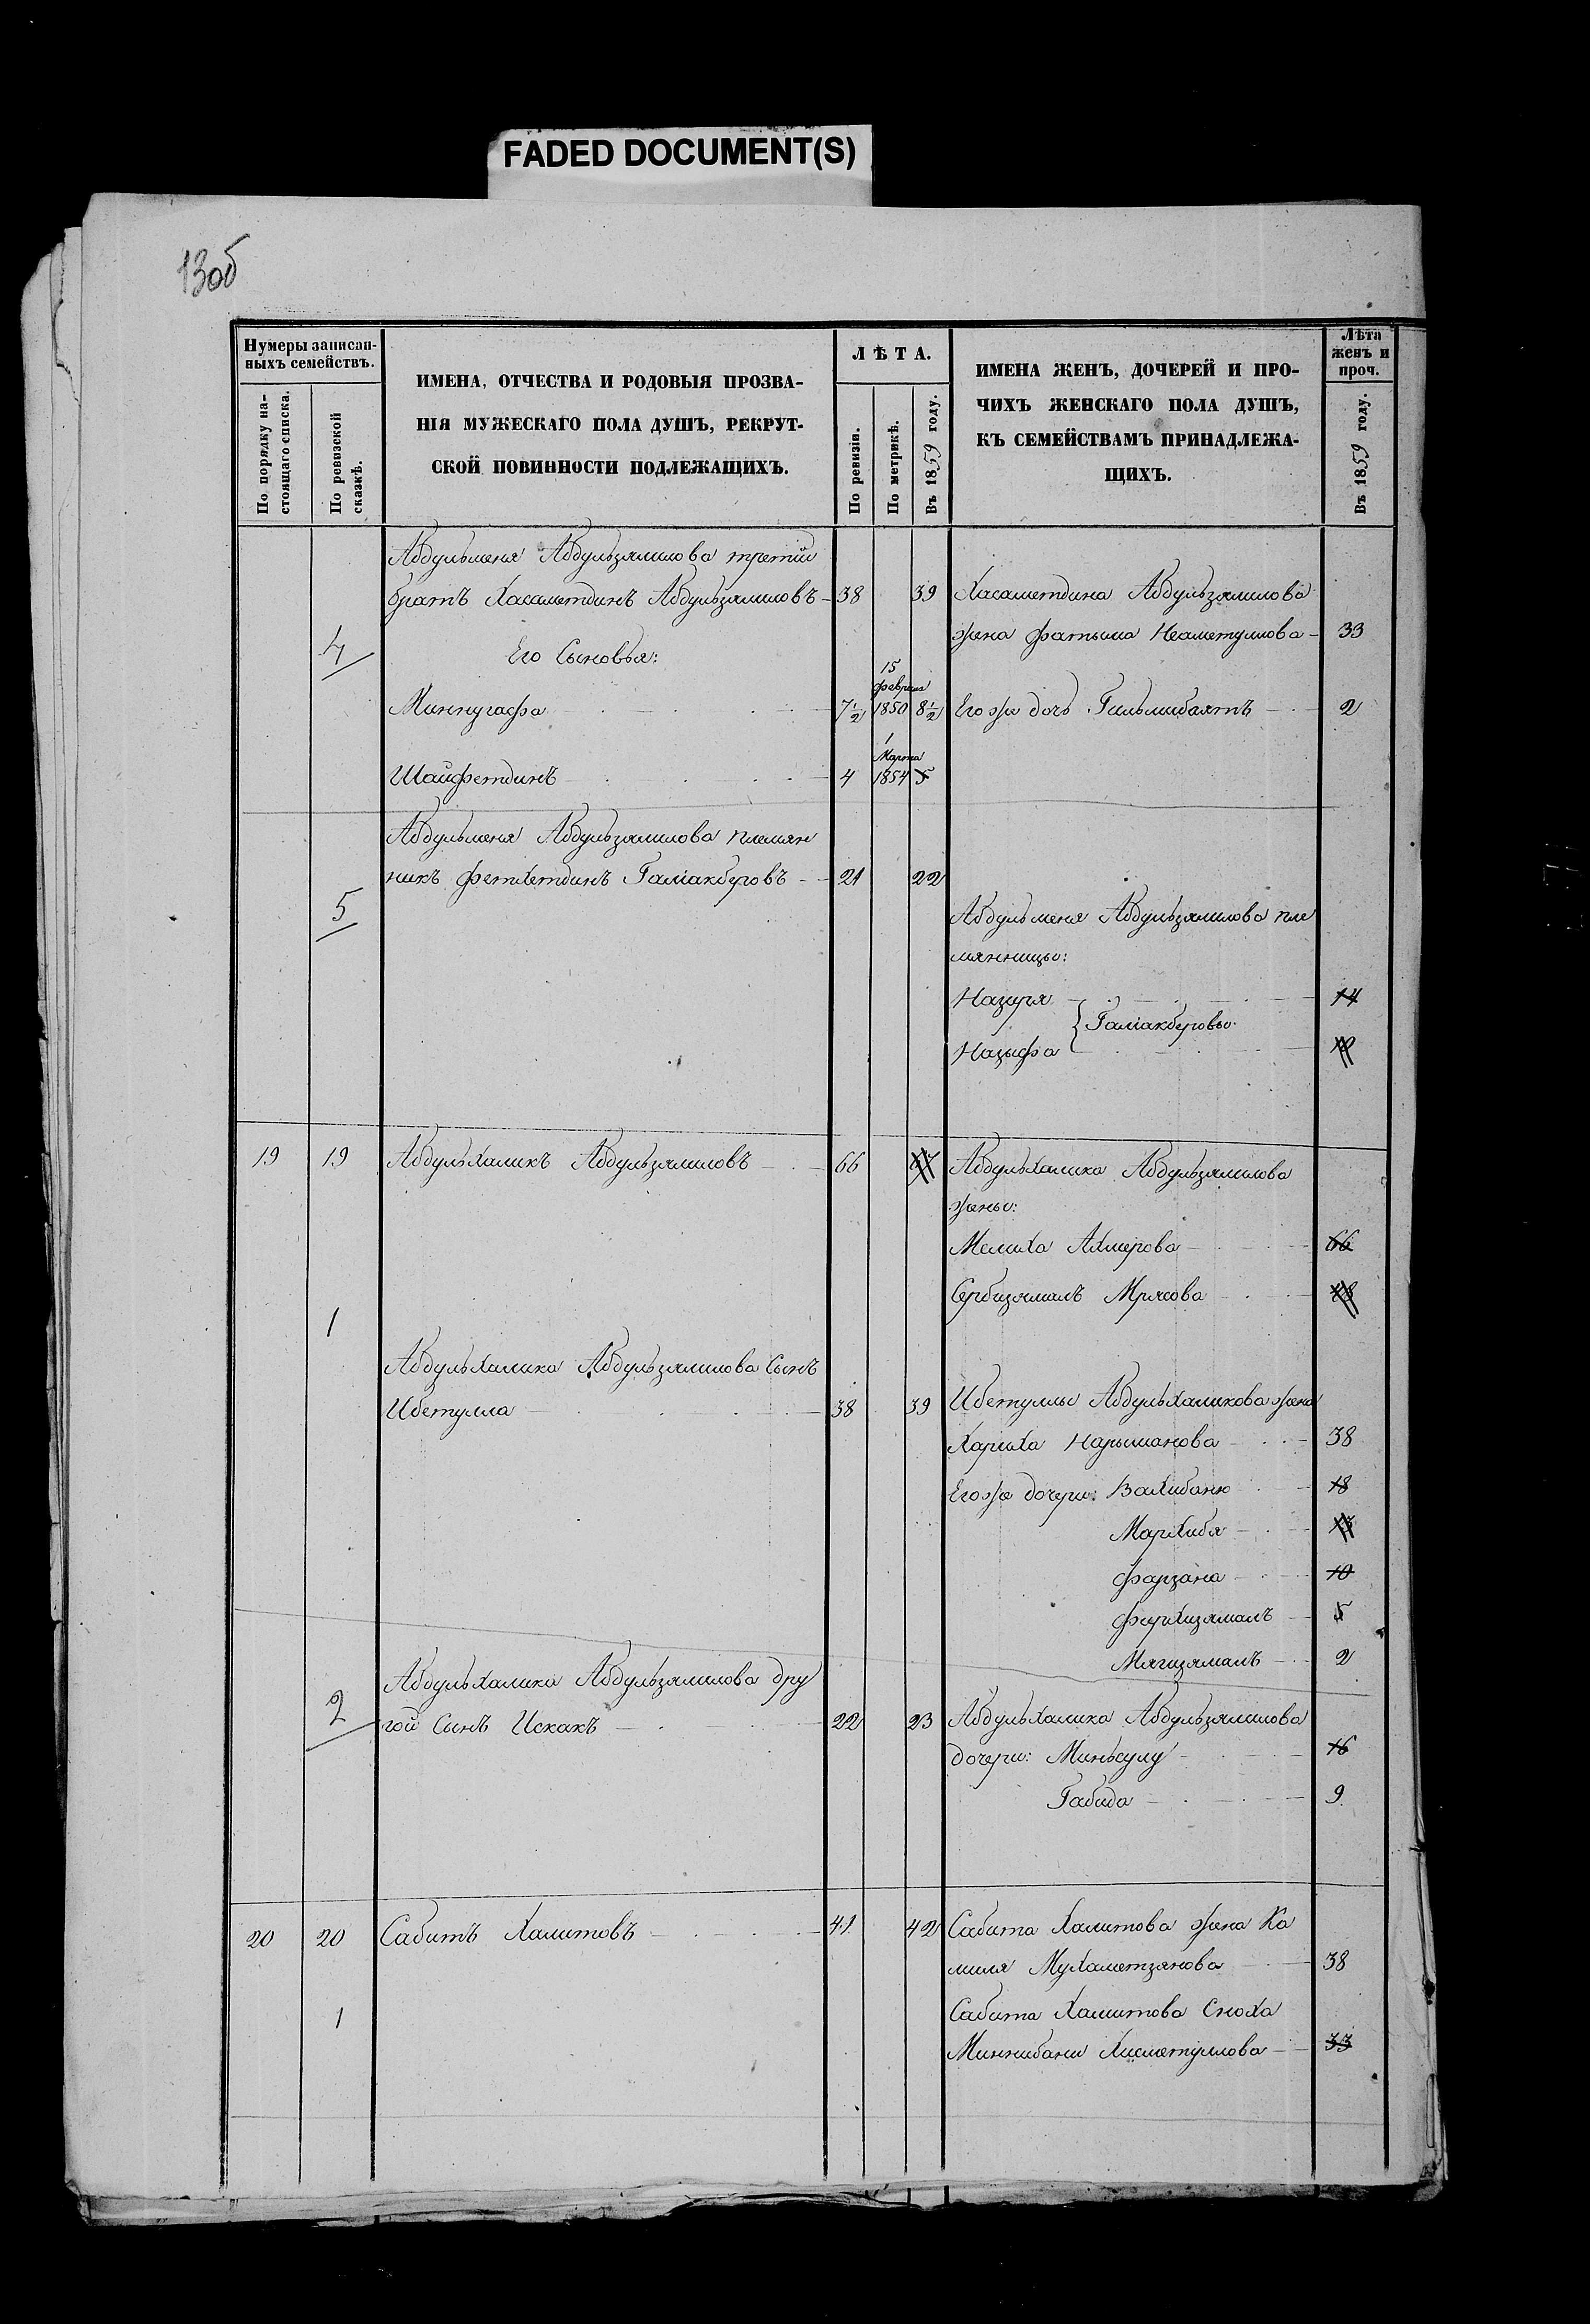 FADED DOCUMENT(S)
13об
Нумеры записан-
ныхъ семействъ.
По порядку на-
стоящаго списка.
По ревизской
сказкѣ.
ИМЕНА, ОТЧЕСТВА И РОДОВЫЯ ПРОЗВА-
НІЯ МУЖЕСКАГО ПОЛА ДУШЪ, РЕКРУТ-
СКОЙ ПОВИННОСТИ ПОДЛЕЖАЩИХЪ.
ЛѢТА.
По ревизіи.
По метрикѣ.
Въ 1859 году.
ИМЕНА ЖЕНЪ, ДОЧЕРЕЙ И ПРО-
ЧИХЪ ЖЕНСКАГО ПОЛА ДУШЪ,
КЪ СЕМЕЙСТВАМЪ ПРИНАДЛЕЖА-
ЩИХЪ.
Лѣта
женъ и
проч.
Въ 1859 году.
Абдульменя Абдульзямилова третій
братъ Хасаметдинъ Абдульзямиловъ 38 39 Хасаметдина Абдульзямилова
жена Фатьима Неаметуллова 33
4 Его Сыновья:
15
февраля
Миннугафа 7 1/2 1850 8 1/2 Его же дочь Гильмибаятъ 2
1
Марта
Шайфетдинъ 4 1854 5
Абдульменя Абдульзямилова племян
никъ Фетхетдинъ Галіакберовъ 21 22
5 Абдульменя Абдульзямилова пле
мянницы:
Назиря 14
Галіакберовы
Назифа
19 19 Абдульхаликъ Абдульзямиловъ 66 67 Абдульхалика Абдульзямилова
жены:
Мелиха Ахмерова 66
Сербизямалъ Мрясова 48
1
Абдульхалика Абдульзямилова Сынъ
Ибетулла 38 39 Ибетуллы Абдульхаликова жена
Хариха Нарыманова 38
Его же дочери: Валибаню 18
Мархибя 13
Фарзана 10
Фархизямалъ 5
Мягизямалъ 2
Абдульхалика Абдульзямилова дру
2 гой Сынъ Искакъ 22 23 Абдульхалика Абдульзямилова
дочери: Миньсулу 16
Габида 9
20 20 Сабитъ Халитовъ 41 42 Сабита Халитова жена Ка
миля Мухаметзянова 38
1 Сабита Халитова Сноха
Миннибани Хисметуллова 33